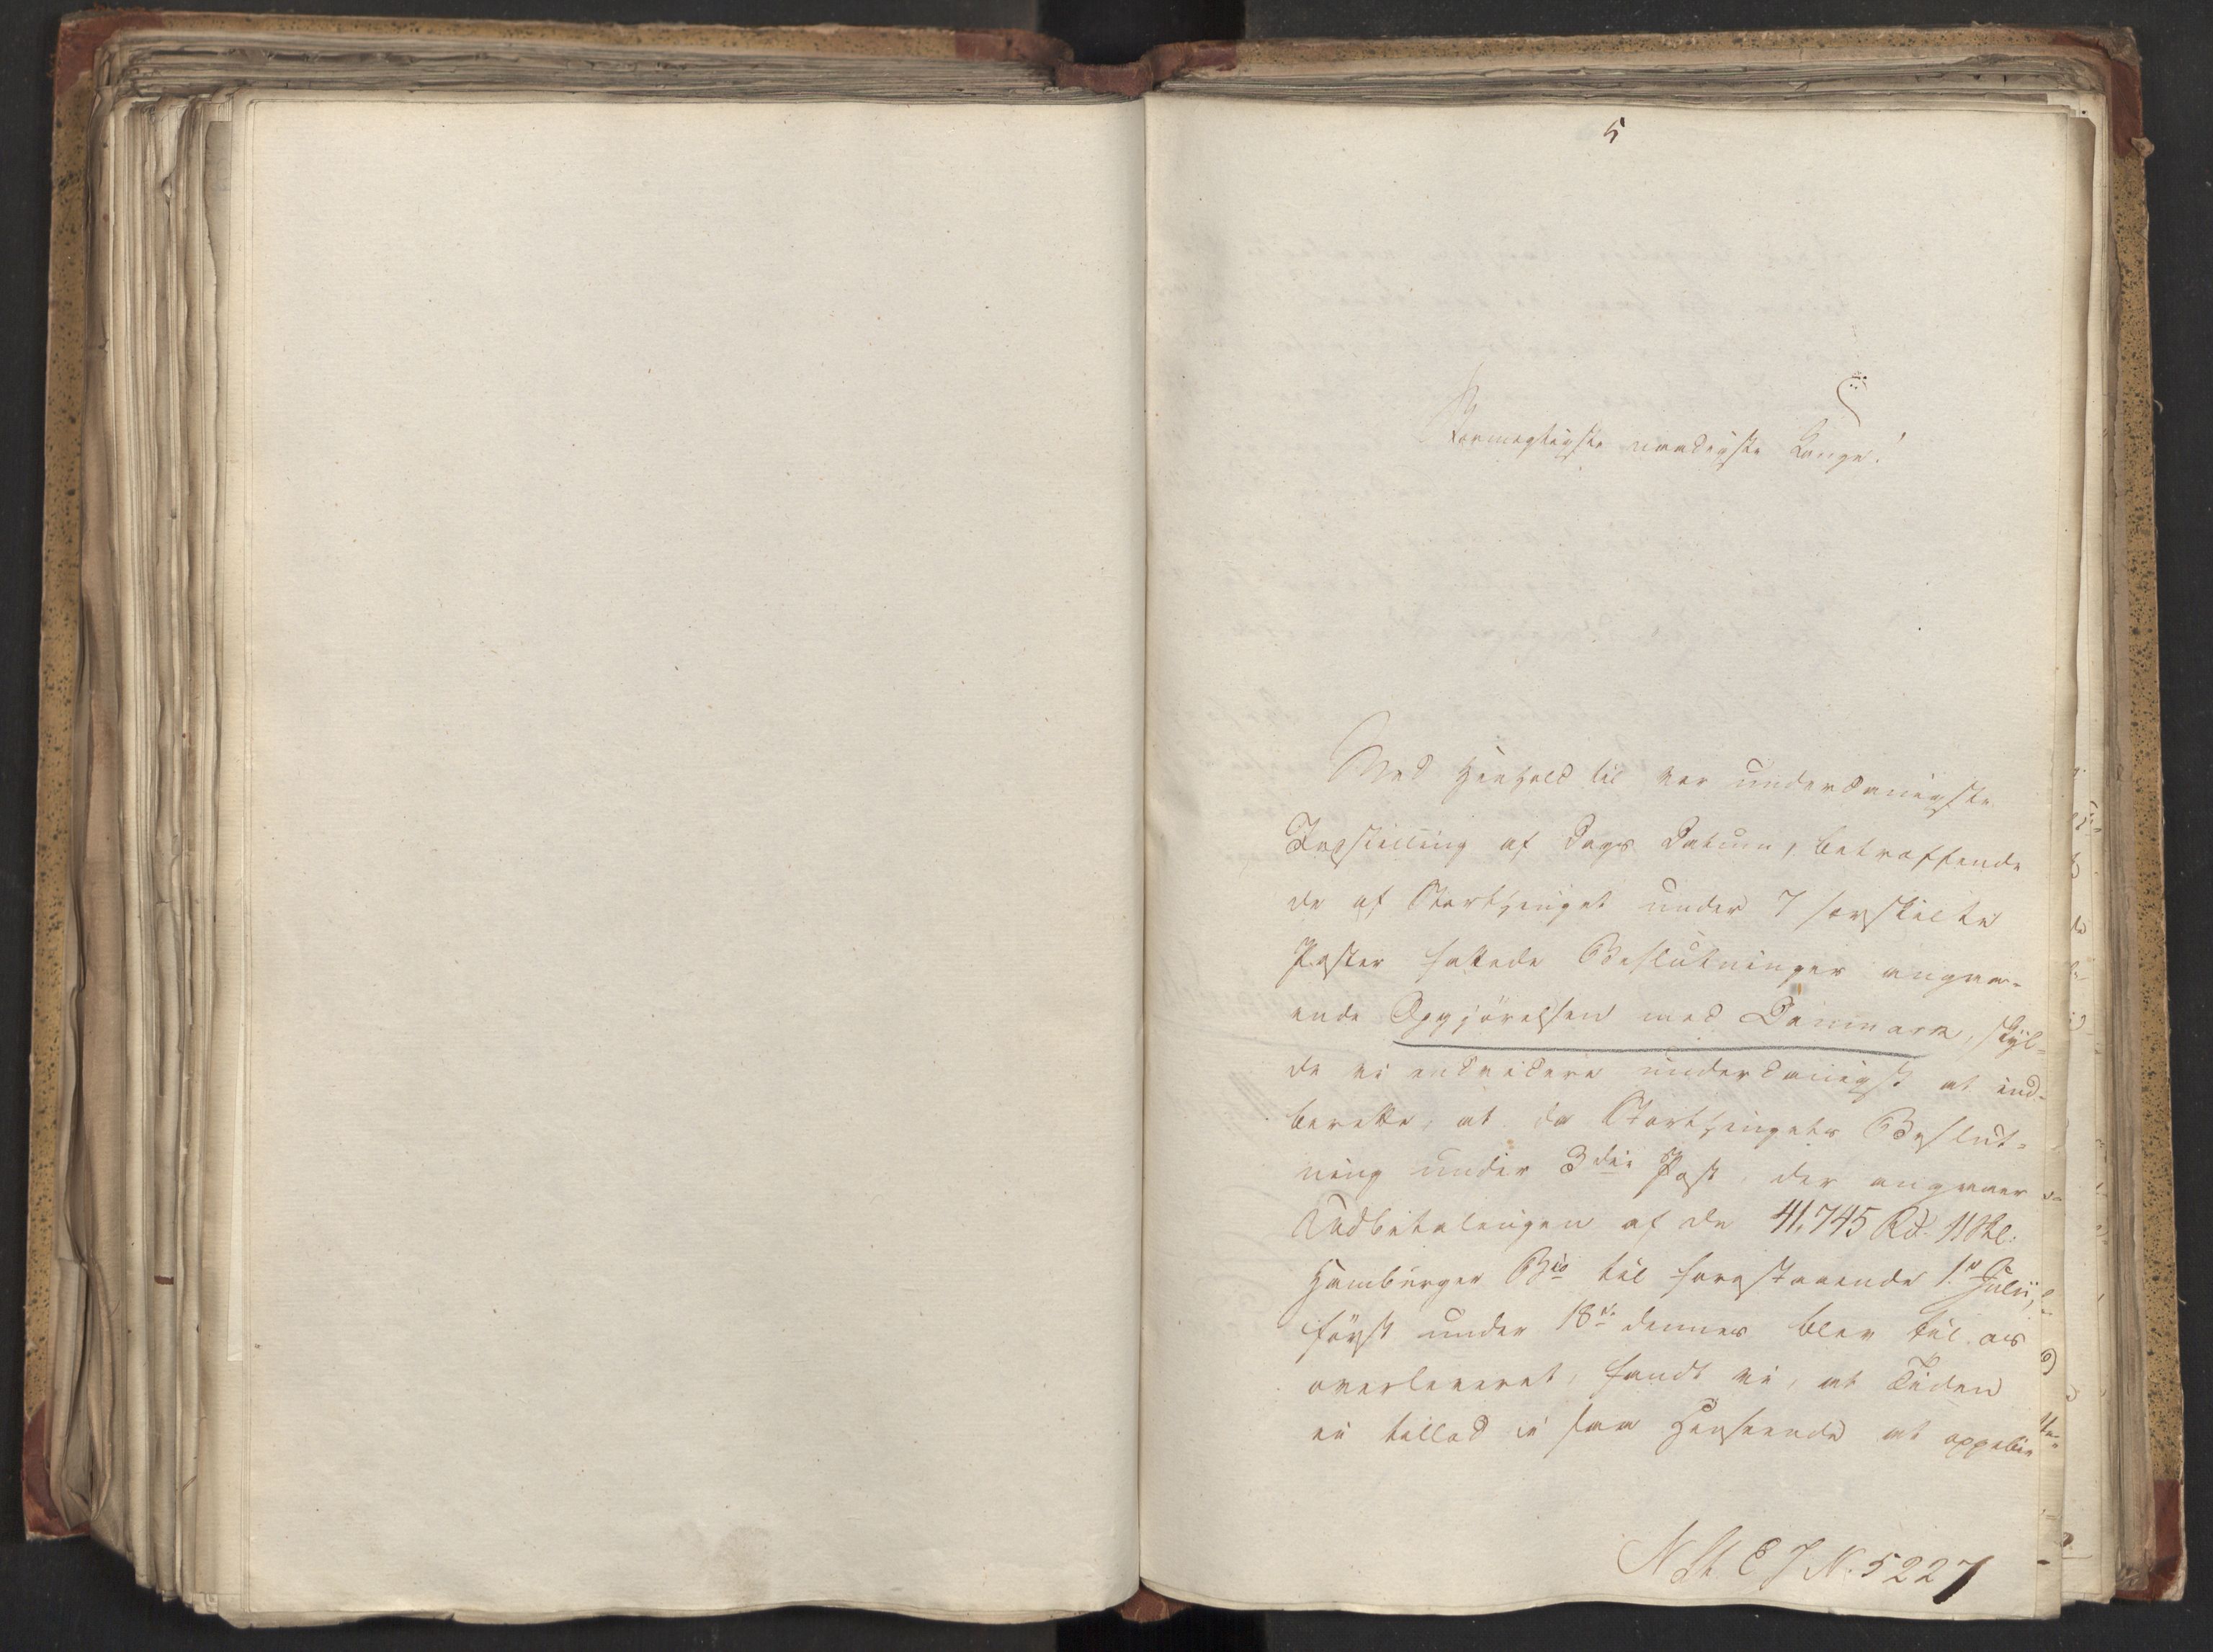 5
Stormægtigste naadigste Konge!
Med Henhold til vor underdanigste
Indstilling af Dags Datum, betræffende
de af Storthinget under 7 særskilte
Poster fattede Beslutninger angaa-
ende Opgjörelsen med Danmark, skyl-
de vi endvidere underdanigst at ind-
berette, at da Storthingets Beslut-
ning under 3die Post, der angaaer
Udbetalingen af de 41,745 Rd. 11 Sk.
Hamburger Bco til forestaaende 1ste Julii,
först under 18de dennes blev til os
overleveret, fandt vi, at Tiden
ei tillod i saa Henseende at oppebie
N St. E J N. 5227